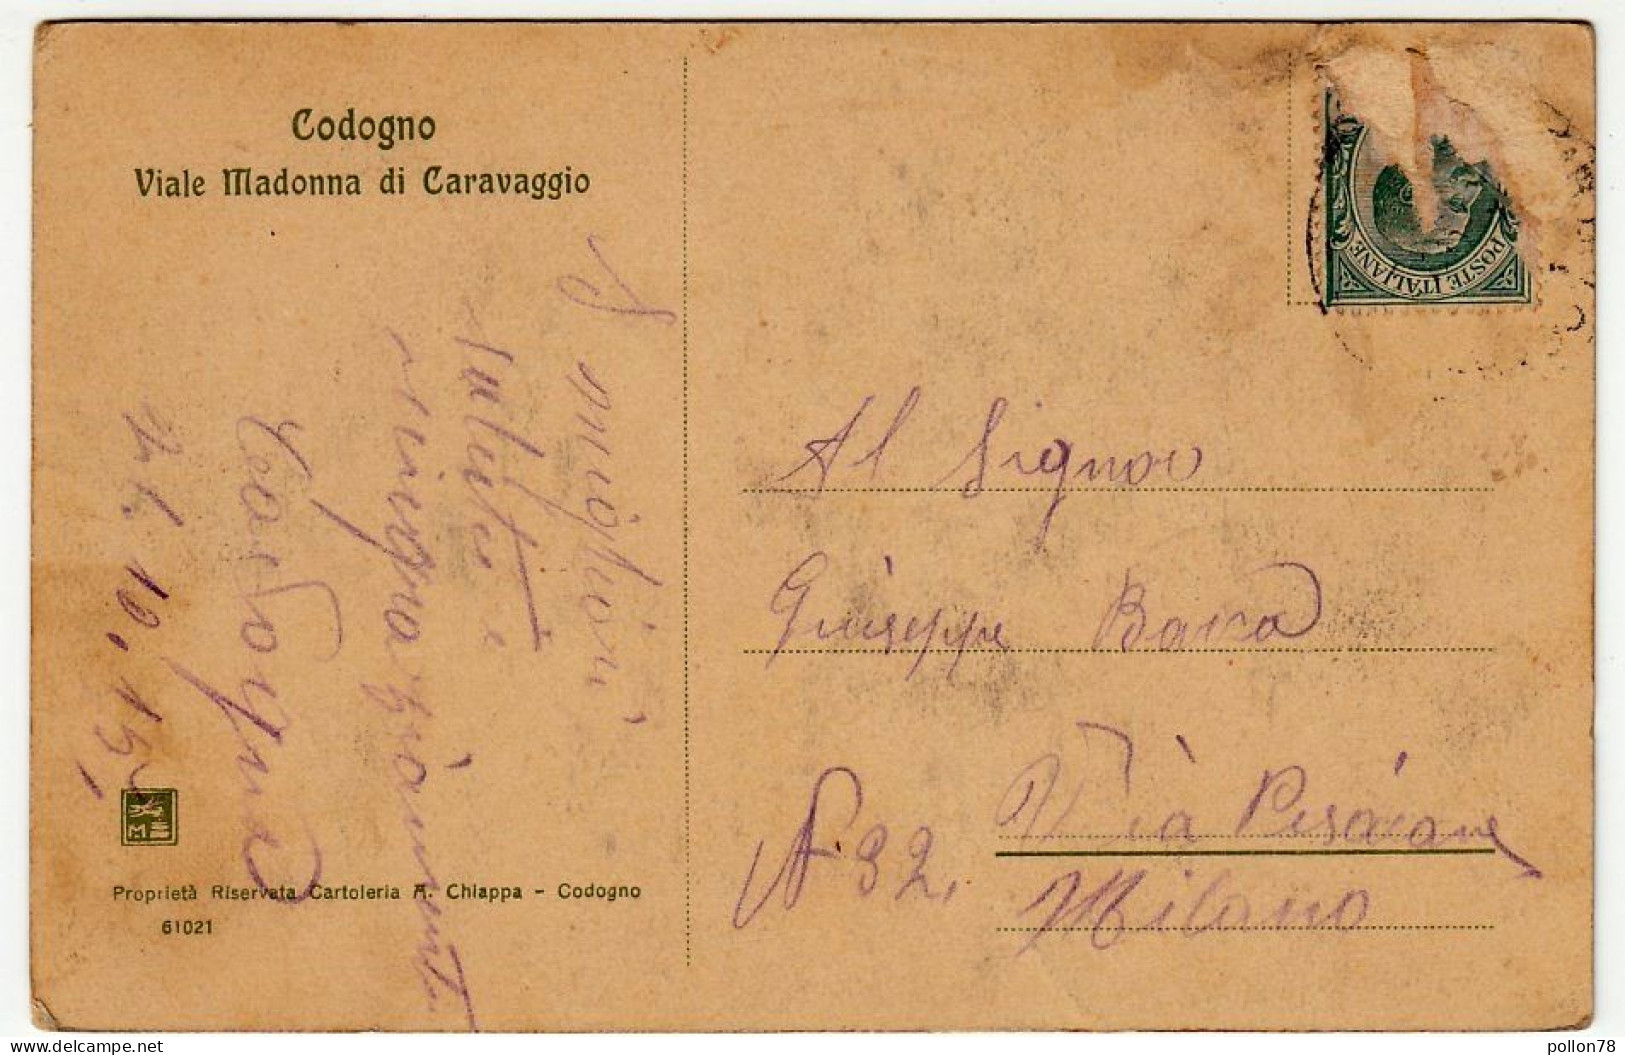 Codogno
Viale Madonna di Caravaggio
I migliori
saluti e
ringraziamenti
24. 10. 15
M
Proprietà Riservata Cartoleria A. Chiappa - Codogno
61021
POSTE ITALIANE
Al Signor
Giuseppe
Via
N. 32.
Milano
www.delcampe.net
pollon78